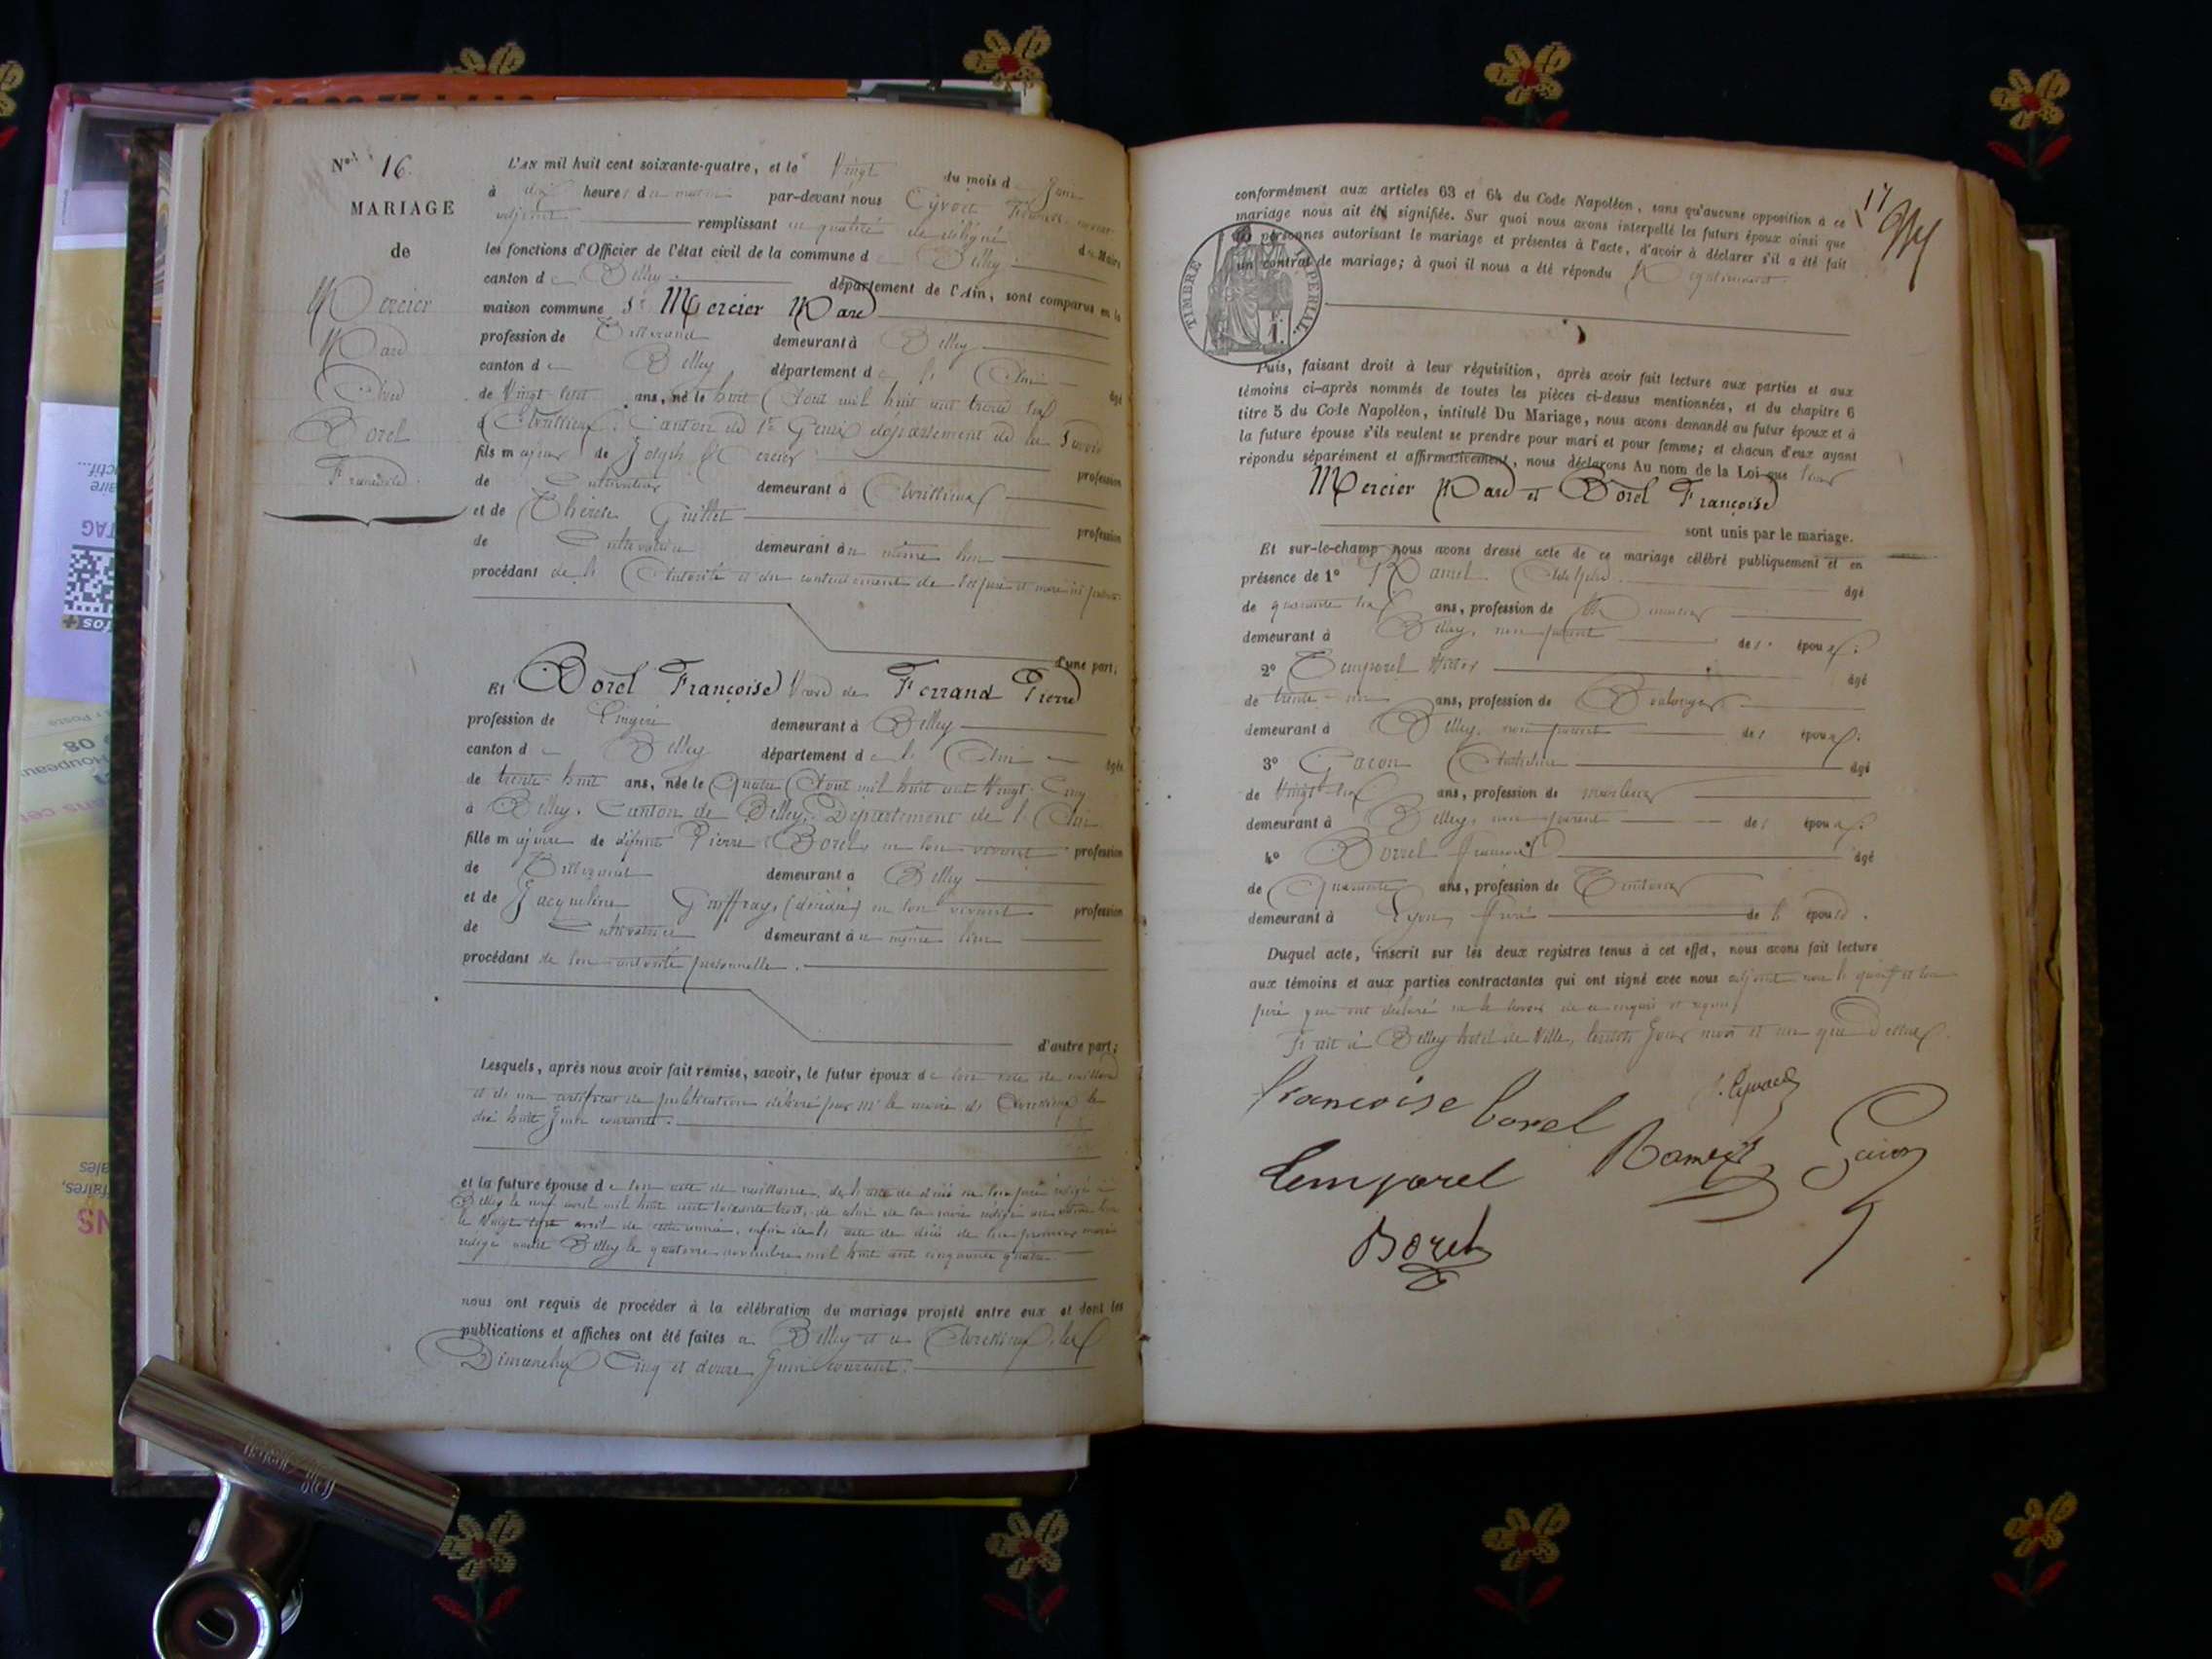 N° 16.
MARIAGE
de
Mercier
Marc
Avec
Borel
Françoise
L'AN mil huit cent soixante-quatre, et le Vingt du mois de Juin
à dix heures du matin par-devant nous Cyvoct
adjoint remplissant en qualité de délégué du Maire
les fonctions d'Officier de l'état civil de la commune de Belley
canton de Belley département de l'Ain, sont comparus en la
maison commune Sr Mercier Marc
profession de Tisserand demeurant à Belley
canton de Belley département de l'Ain âgé
de Vingt sept ans, né le huit Aout mil huit cent trente six
à Avressieux, Canton de St Genix département de la Savoie
fils majeur de Joseph Mercier profession
de Cultivateur demeurant à Avressieux
et de Thérèse Guillet profession
de Cultivatrice demeurant au même lieu
procédant de l'Autorité et du consentement de ses père et mère ici présents
d'une part;
Et Borel Françoise Veuve de Ferrand Pierre
profession de Lingère demeurant à Belley
canton de Belley département de l'Ain âgée
de trente huit ans, née le Quatre Aout mil huit cent Vingt-Cinq
à Belley, Canton de Belley, Département de l'Ain
fille majeure de défunt Pierre Borel, en son vivant profession
de demeurant à Belley
et de Jacqueline Geoffray, (décédée) en son vivant profession
de Cultivatrice demeurant au même lieu
procédant de son autorité personnelle.
d'autre part;
Lesquels, après nous avoir fait remise, savoir, le futur époux de son acte de naissance
et de un certificat de publication délivré par Mr le maire d'Avressieux le
dix huit Juin courant.
et la future épouse de son acte de naissance, de l'acte de décès de son père rédigé à
Belley le neuf avril mil huit cent soixante trois, de celui de sa mère rédigé au même lieu
le Vingt sept avril de cette année, enfin de l'acte de décès de son premier mari
rédigé audit Belley le quatorze novembre mil huit cent cinquante quatre
nous ont requis de procéder à la célébration du mariage projeté entre eux et dont les
publications et affiches ont été faites à Belley et à Avressieux, les
Dimanches Cinq et douze Juin courant.
17
conformément aux articles 63 et 64 du Code Napoléon, sans qu'aucune opposition à ce
mariage nous ait été signifiée. Sur quoi nous avons interpellé les futurs époux ainsi que
les personnes autorisant le mariage et présentes à l'acte, d'avoir à déclarer s'il a été fait
un contrat de mariage; à quoi il nous a été répondu Négativement
TIMBRE IMPERIAL.
Puis, faisant droit à leur réquisition, après avoir fait lecture aux parties et aux
témoins ci-après nommés de toutes les pièces ci-dessus mentionnées, et du chapitre 6
titre 5 du Code Napoléon, intitulé Du Mariage, nous avons demandé au futur époux et à
la future épouse s'ils veulent se prendre pour mari et pour femme; et chacun d'eux ayant
répondu séparément et affirmativement, nous déclarons Au nom de la Loi que
Mercier Marc et Borel Françoise
sont unis par le mariage.
Et sur-le-champ nous avons dressé acte de ce mariage célébré publiquement et en
présence de 1° Ramel Adolphe âgé
de quarante six ans, profession de
demeurant à Belley, non parent des époux.
2° Temporel Victor âgé
de trente-un ans, profession de Boulanger
demeurant à Belley, non parent des époux.
3° Gacon Anthelme âgé
de Vingt-six ans, profession de
demeurant à Belley, non parent des époux.
4° Borel François âgé
de Quarante ans, profession de Teinturier
demeurant à Lyon, frère de l'épouse.
Duquel acte, inscrit sur les deux registres tenus à cet effet, nous avons fait lecture
aux témoins et aux parties contractantes qui ont signé avec nous adjoint non l'époux et son
père qui ont déclaré ne le savoir de ce enquis et requis.
Fait à Belley hotel de Ville, lesdits Jour mois et an que dessus.
francoise borel
Temporel
Ramel
Gacon
Borel